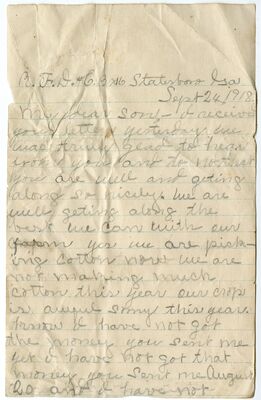 R. F. D. #6. Statesboro Ga
Sept 24, 1918.
My dear Sony - I received
your letter yesterday we
was glad to hear
from you and to no that
you are well and geting
along so nicely. we are
well, geting along the
best we can with our
farm yes we are pick-
ing cotton now we are
not making much
cotton this year our crop
is awful sorry this year.
know I have not got
the money you sent me
yet I have not got that
money you sent me August
20 and I have not